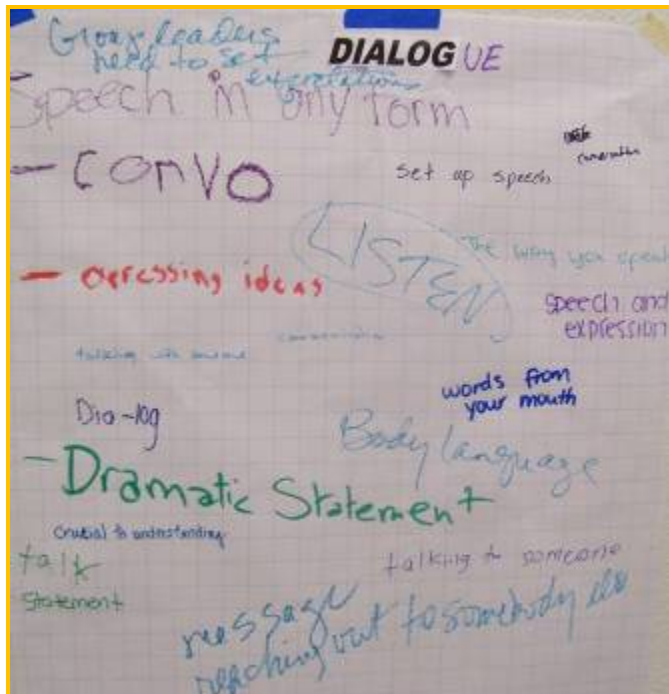 Group leaders
need to set
expectations
DIALOGUE
Speech in any form
- Convo
set up speech
LISTEN
The way you speak
- expressing ideas
speech and
expression
words from
your mouth
Dia-log
Body language
- Dramatic Statement
Crucial to understanding
talk
statement
talking to someone
message
reaching out to somebody